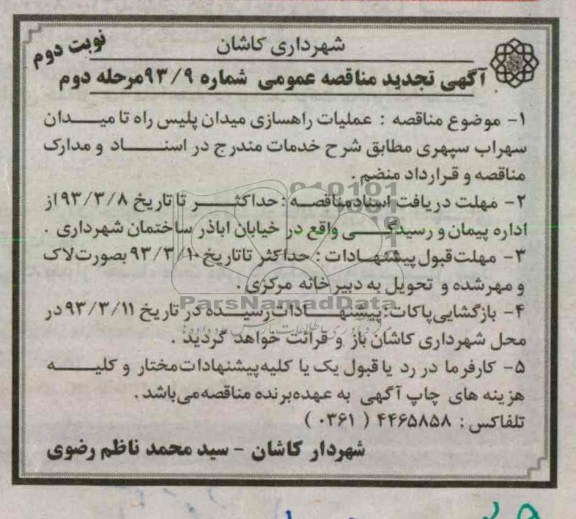 شهرداری کاشان
نوبت دوم
آگهی تجدید مناقصه عمومی شماره ۹۳/۹مرحله دوم
۱- موضوع مناقصه : عملیات راهسازی میدان پلیس راه تا میدان
سهراب سپهری مطابق شرح خدمات مندرج در اسناد و مدارک
مناقصه و قرارداد منضم .
۲- مهلت دریافت اسنادمناقصه : حداکثر تا تاریخ ۹۳/۳/۸ از
اداره پیمان و رسیدگی واقع در خیابان اباذر ساختمان شهرداری .
۳- مهلت قبول پیشنهادات : حداکثر تاتاریخ ۹۳/۳/۱۰ بصورت لاک
و مهرشده و تحویل به دبیرخانه مرکزی .
ParsNamadData
۴- بازگشایی پاکات:پیشنهادات رسیده در تاریخ ۹۳/۳/۱۱ در
محل شهرداری کاشان باز و قرائت خواهد گردید .
۵- کارفرما در رد یا قبول یک یا کلیه پیشنهادات مختار و کلیه
هزینه های چاپ آگهی به عهده برنده مناقصه می باشد .
تلفاکس : ۴۴۶۵۸۵۸ ( ۰۳۶۱ )
شهردار کاشان - سید محمد ناظم رضوی